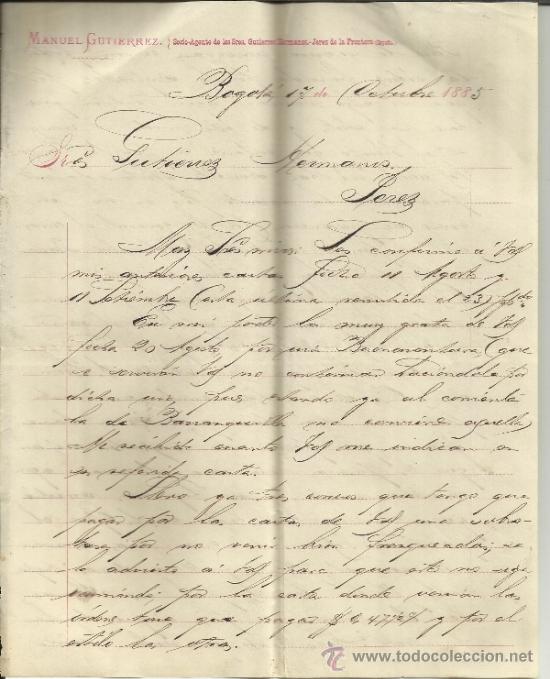 MANUEL GUTIERREZ. } Socio-Agente de los Sres. Gutierrez Hermanos.-Jerez de la Frontera
Bogotá 17 de Octubre 1885
Sres Gutierrez Hermanos.
Jerez
Muy Sres mios: Les confirmo á Vds
mis anteriores cartas fecha 11 Agosto y
11 Setiembre (esta ultima remitida el 23)
En mi poder la muy grata de Vds
fecha 20 Agosto por via Buenaventura (que
se servirán Vds no continuar haciéndolo por
dicha via, pues estando ya al corriente
la de Barranquilla no conviene aquella
He recibido cuanto Vds me indican en
su referida carta.
Llevo ya tres correos que tengo que
pagar por las cartas de Vds una
por no venir bien franqueadas; se
lo advierto á Vds para que esto no siga
por la carta donde venian las
tuve que pagar $ y por el
estilo las otras.
todocoleccion.net